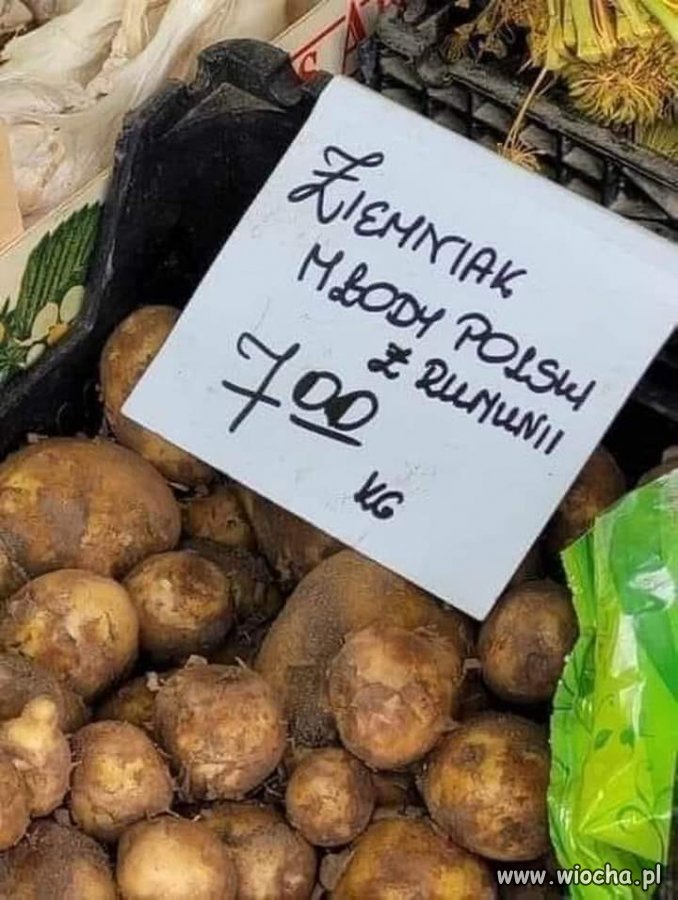 ZIEMNIAK
MŁODY POLSKI
Z RUMUNII
7 00
KG
www.wiocha.pl